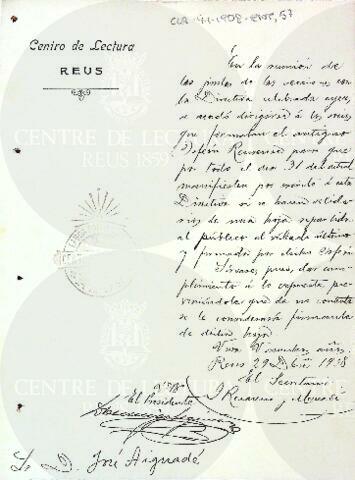 CLR-4.1-1908-8905, 57
Centro de Lectura
REUS
En la reunión de
las juntas de las secciones con
la Directiva celebrada ayer,
se acordó dirigirse á los
que formaban el antiguo
Orfeón Reusense para que
por todo el día 31 del actual
manifiesten por escrito á esta
Directiva si se hacen solida-
rios de una hoja repartida
al público el sábado último
y firmada por dicho Orfeón
Sírvase, pues, dar cum-
plimiento á lo expuesto pre-
viniéndole que de no contestar
se le considerará firmante
de dicha hoja.
Viva V. muchos años.
Reus 29 1908
El Secretario
VºBº
El Presidente
Sr. D. José Aiguadé
CENTRE DE LECTURA
REUS 1859